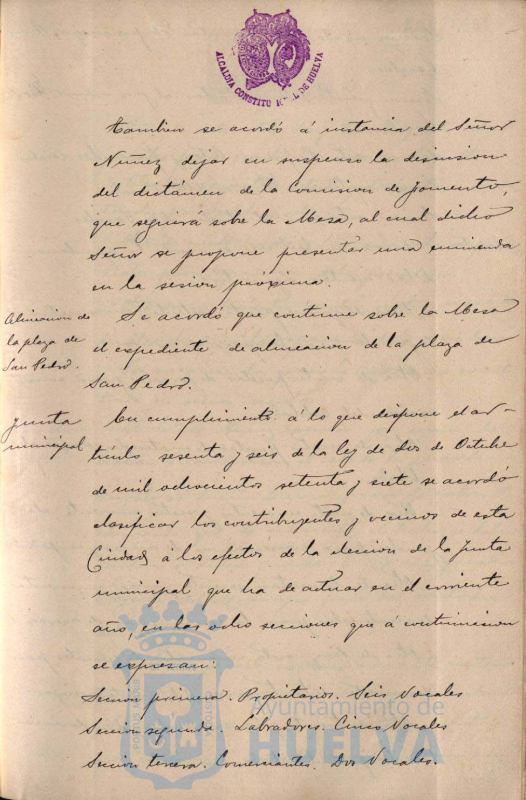 ALCALDIA CONSTITU NAL DE HUELVA
tambien se acordó á instancia del Señor
Nuñez dejar en suspenso la
del dictámen de la Comision de fomento,
que seguirá sobre la Mesa, al cual dicho
Señor se propone presentar una enmienda
en la sesion próxima.
Alineacion de
la plaza de
San Pedro.
Se acordó que continue sobre la Mesa
el espediente de alineacion de la plaza de
San Pedro.
Junta
municipal
En cumplimiento á lo que dispone el ar-
tículo sesenta y seis de la ley de dos de Octubre
de mil ochocientos setenta y siete se acordó
clasificar los contribuyentes y vecinos de esta
Ciudad á los efectos de la eleccion de la Junta
municipal que ha de actuar en el corriente
año, en las ocho secciones que á continuacion
se expresan:
Seccion primera. Propietarios. Seis Vocales
Seccion segunda. Labradores. Cinco Vocales
Seccion tercera. Comerciantes. Dos Vocales.
Ayuntamiento de
HUELVA